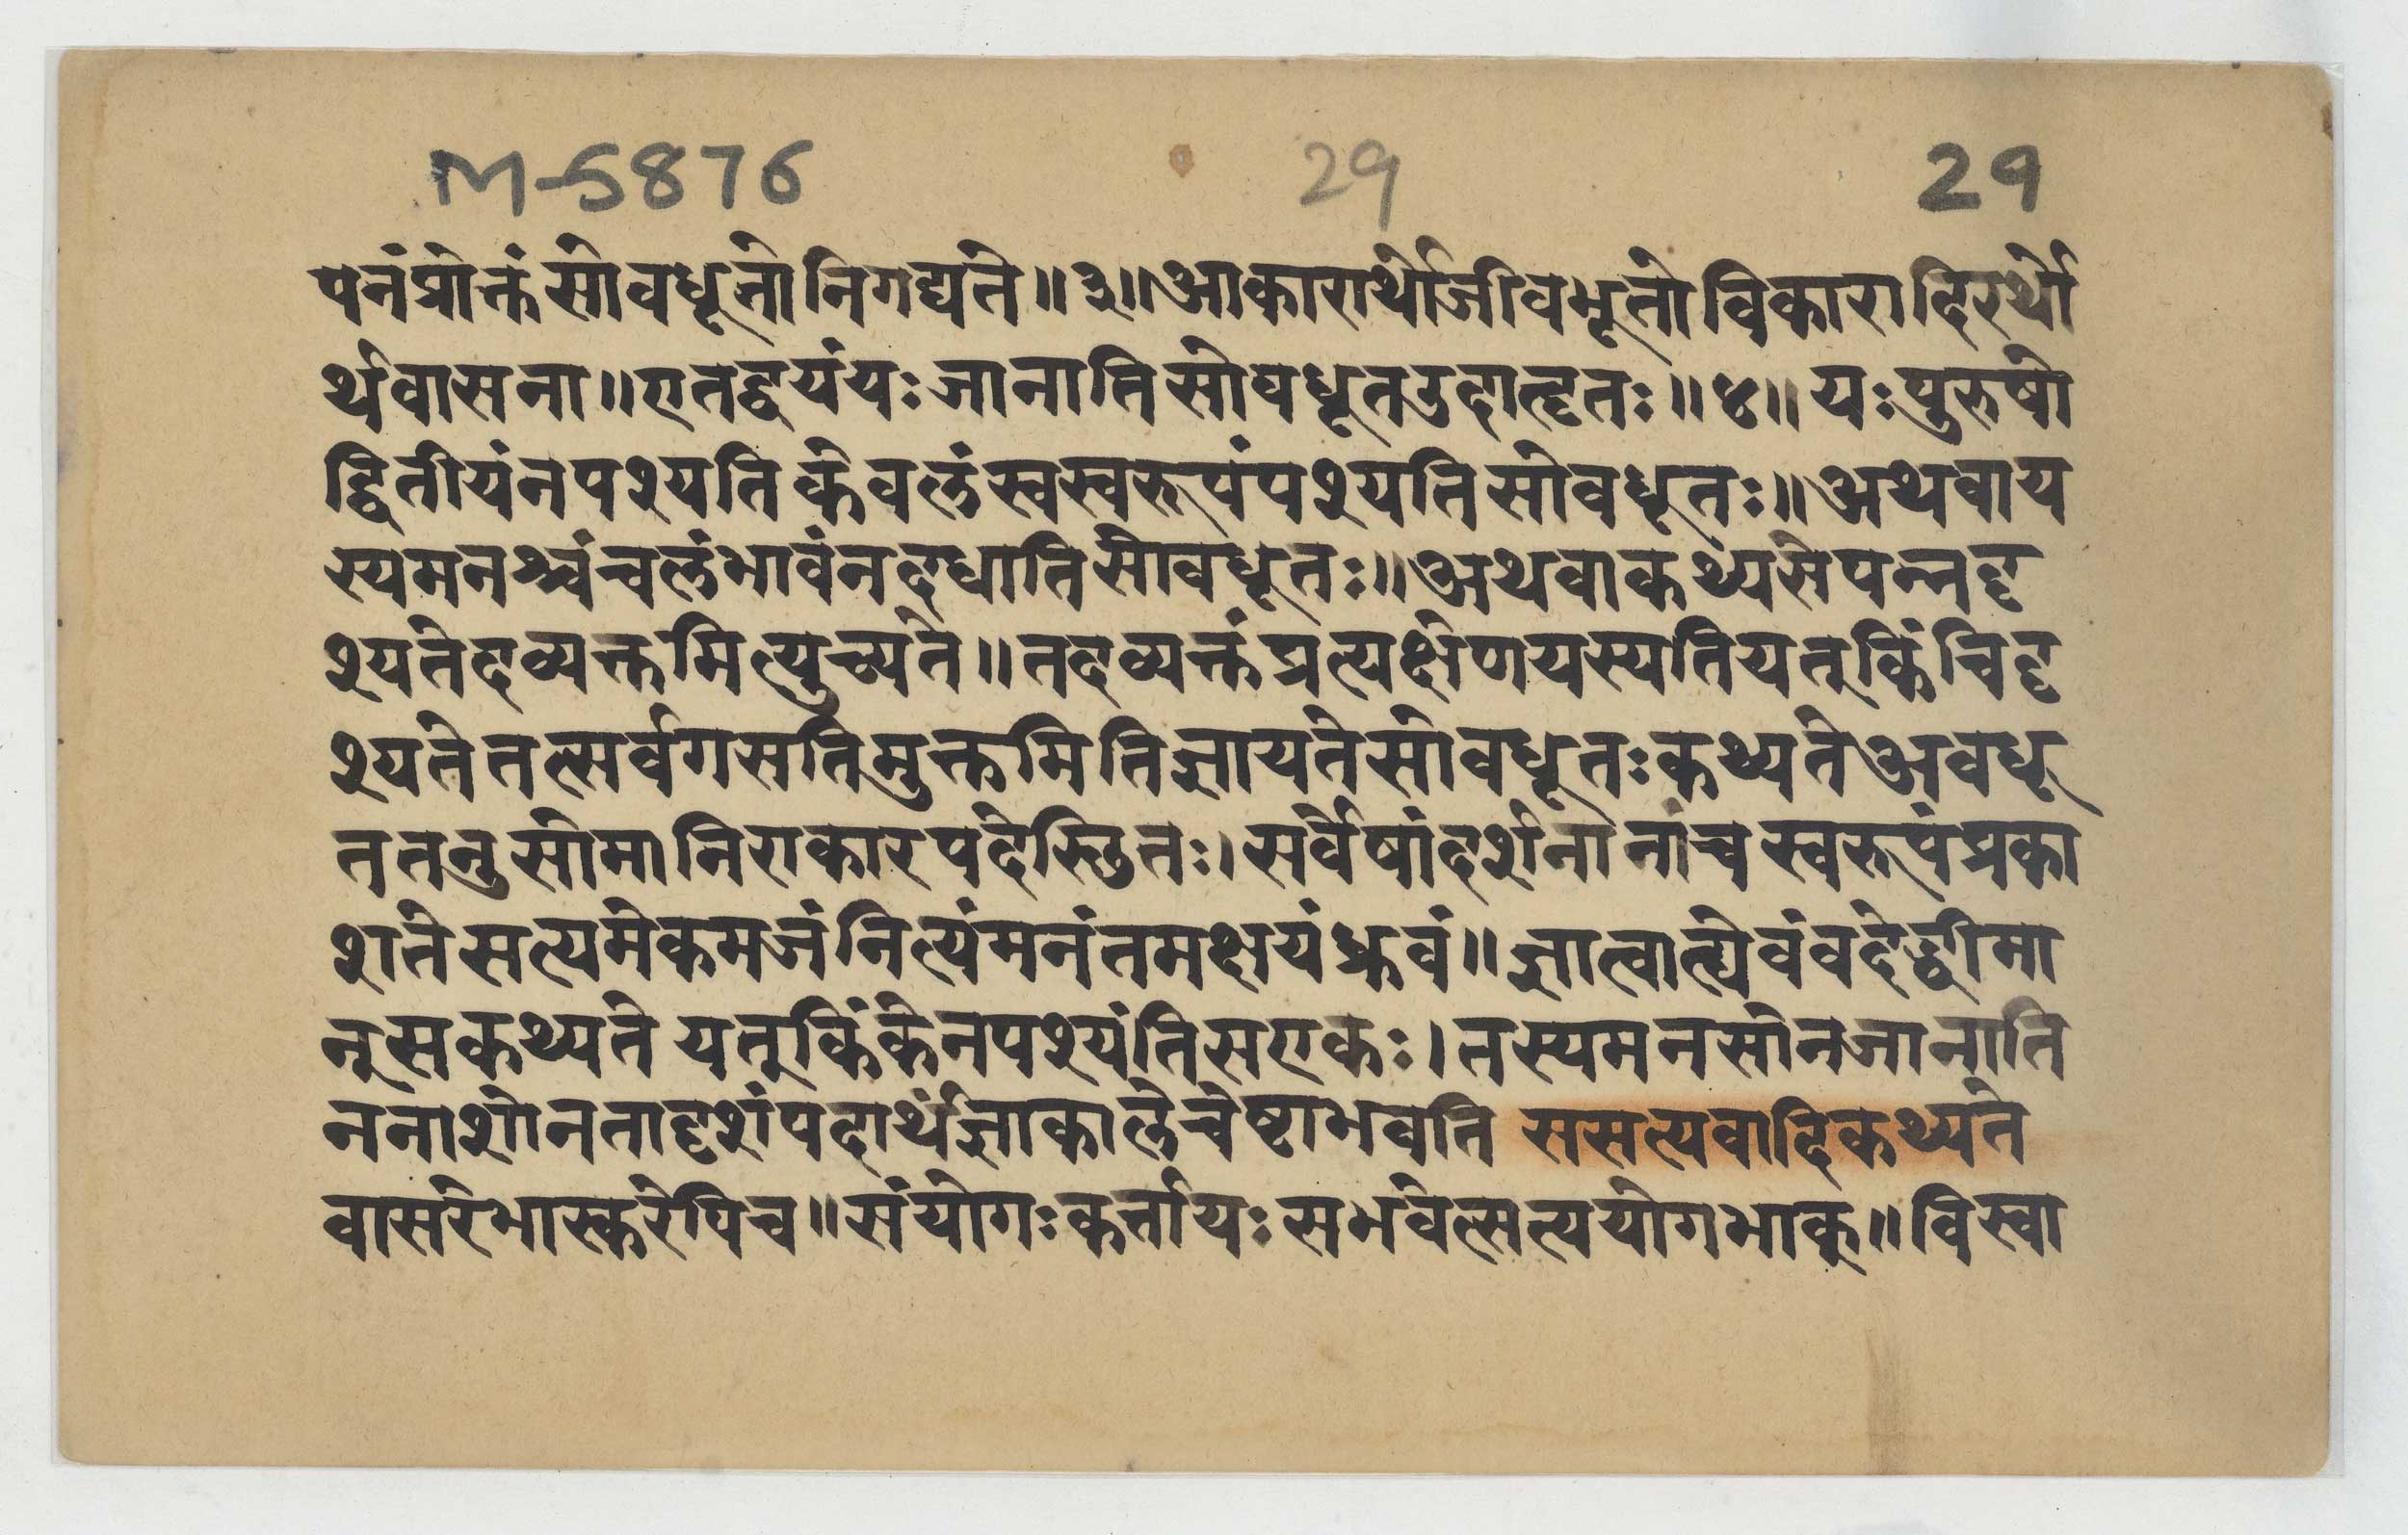 M-5876 29 29
पनंप्रोक्तंसोवधूतोनिगद्यते॥३॥आकारार्थोजीवभूतोविकारादिरर्थो
र्थवासना॥एतद्द्वयंयःजानातिसोवधूतउदाहृतः॥४॥यःपुरुषो
द्वितीयंनपश्यतिकेवलंस्वस्वरूपंपश्यतिसोवधूतः॥अथवाय
स्यमनश्चंचलंभावंनदधातिसोवधूतः॥अथवाकथ्यसेपन्नदृ
श्यतेदव्यक्तमित्युच्यते॥तदव्यक्तंप्रत्यक्षेणयस्यतियत्किंचिदृ
श्यतेतत्सर्वगसतिमुक्तमितिज्ञायतेसोवधूतःकथ्यतेअवधू
ततनुसोमानिराकारपदेस्छितः।सर्वेषांदर्शनानांचस्वरूपंप्रका
शतेसत्यमेकमजंनित्यंमनंतमक्षयंध्रुवं॥ज्ञात्वात्येवंवदेद्धीमा
न्सकथ्यतेयत्किंकेनपश्यंतिसएकः।तस्यमनसोनजानाति
ननाशोनतादृशंपदार्थंज्ञाकालेचेष्टाभवति ससत्यवादिकथ्यते
वासरेभास्करेपिच॥संयोगःकर्त्तायःसभवेत्सत्ययोगभाक्॥विस्वा